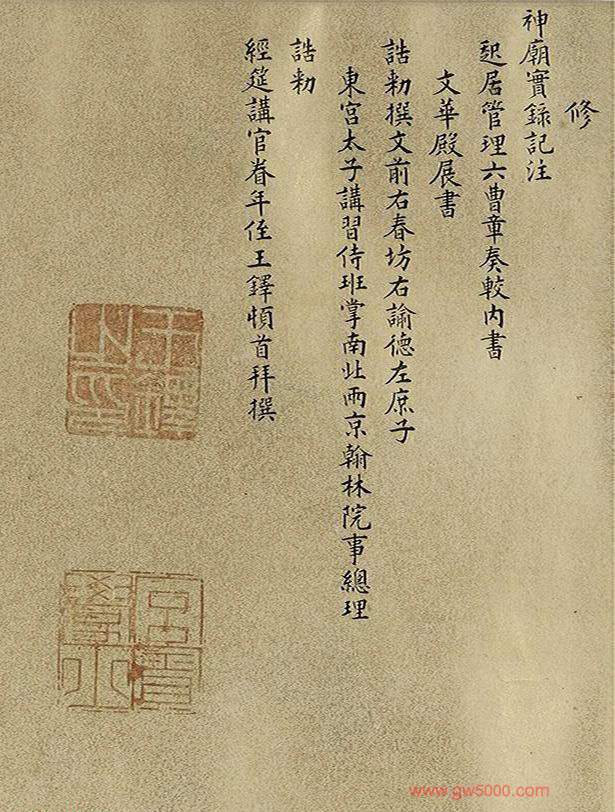 修
神廟實錄記注
起居管理六曹章奏較內書
文華殿展書
誥勑撰文前右春坊右諭德左庶子
東宮太子講習侍班掌南北兩京翰林院事總理
誥勑
經筵講官眷年侄王鐸頓首拜撰
王鐸之印
www.gw5000.com